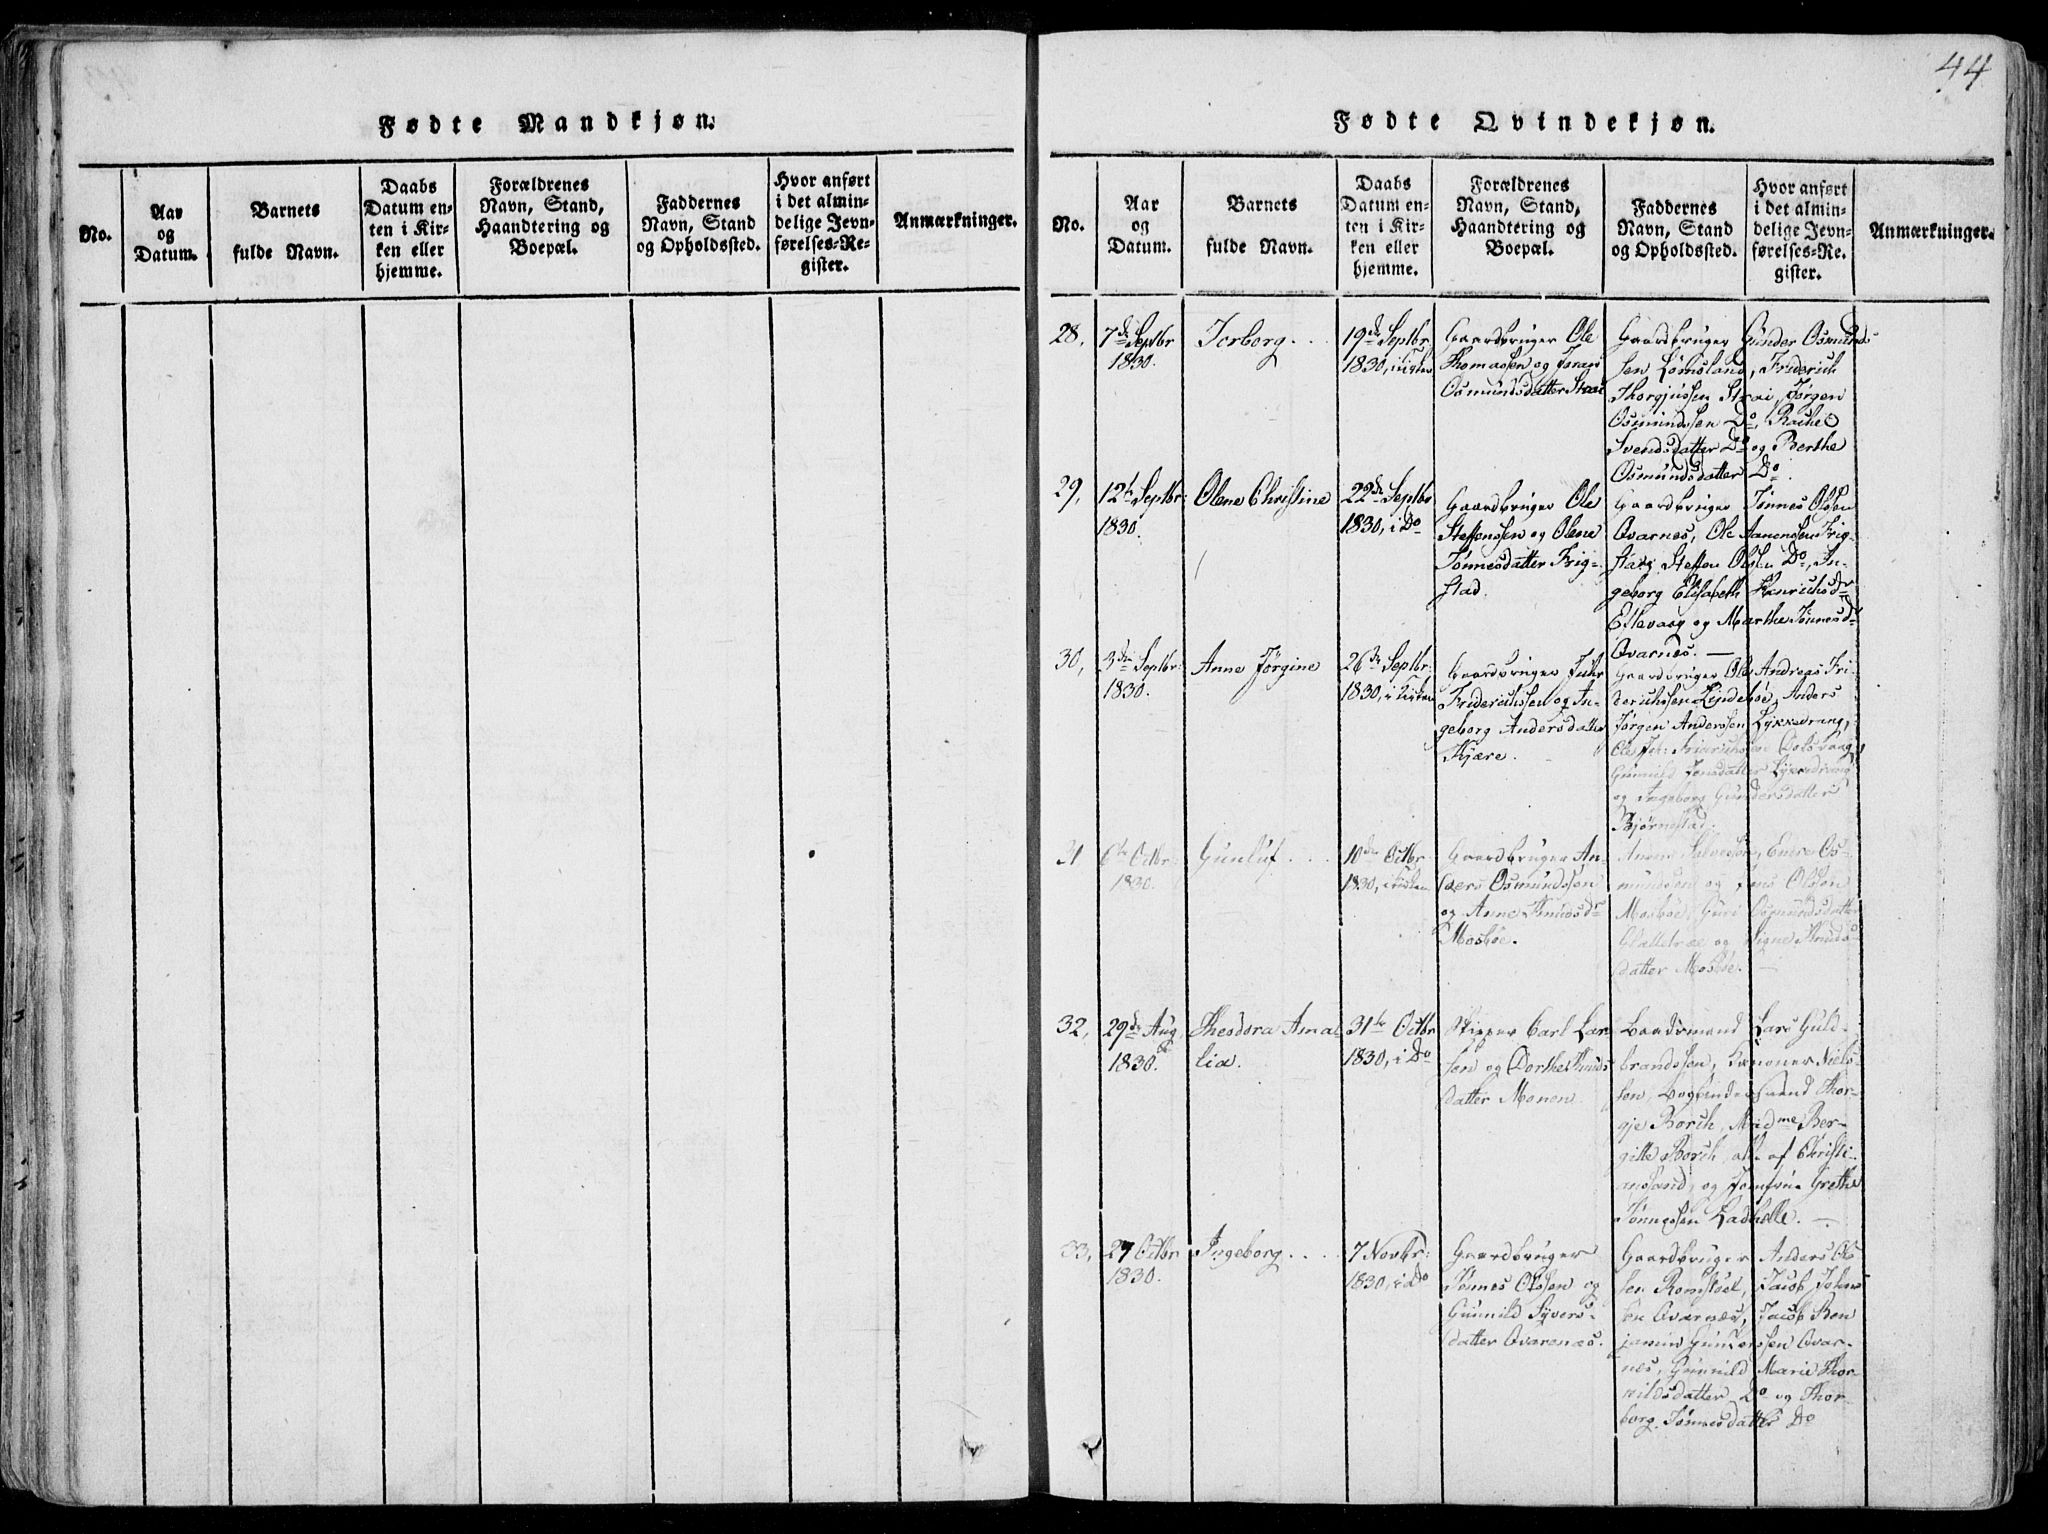 44
Fødte Mandkjøn.
No.
Aar
og
Datum.
Barnets
fulde Navn.
Daabs
Datum en-
ten i Kir-
ken eller
hjemme.
Forældrenes
Navn, Stand,
Haandtering og
Boepæl.
Faddernes
Navn, Stand
og Opholdssted.
Hvor anført
i det almin-
delige Jevn-
førelses-Re-
gister.
Anmærkninger.
Fødte Qvindekjøn.
No.
Aar
og
Datum.
Barnets
fulde Navn.
Daabs
Datum en-
ten i Kir-
ken eller
hjemme.
Forældrenes
Navn, Stand,
Haandtering og
Boepæl.
Faddernes
Navn, Stand
og Opholdssted.
Hvor anført
i det almin-
delige Jevn-
førelses-Re-
gister.
Anmærkninger.
28,
7de Septbr
1830.
Torborg
19de Septbr
1830, i
Gaardbruger Ole
Thomassen og Joran
Osmundsdatter Strai
Gaardbruger Gunder Osmunds
sen Lømsland, Friderich
Thorgjussen Strai, Jørgen
Osmundssen Do, Rachel
Svendsdatter Do og Berthe
Osmundsdatter Do.
29,
12te Septbr:
1830.
Olene Christine
22de Septbr
1830, i Do
Gaardbruger Ole
Steffenssen og Olene
Tønnesdatter Frig-
stad.
Gaardbruger Tønnes Olsen
Qvarnes, Ole Aanensen Frig-
stad, Steffen Olsen Do, In-
geborg Elisabeth Henrichsdr
Ettevaag og Marthe Tønnesd-
Qvarnes. —
30,
3die Septbr:
1830.
Anne Jørgine
26de Septbr:
1830, i Kirken
Gaardbruger Juhr
Friderichssen og In-
geborg Andersdatter
Kjære.
Gaardbruger Ole Andreas Fri-
derichssen Lindeboe, Anders
Jørgen Anderssen Lykkedrang,
Ole Friderichssen
Gunnild Jensdatter Lykkedrang
og Ingeborg Gundersdatter
Bjørnestad.
31
6te Octbr:
1830.
Gunluf
10de Octbr
1830, i Kirken
Gaardbruger An-
ders Osmundssen
og Anne Knudsdr
Mosbøe.
Anenn Salvessen, Endre Os-
mundsen og Jens Olssen
Mosbøe, Guri Osmundsdatter
og Signe Knuds-
datter Mosbøe. —
32,
29de Aug.
1830.
Theodora Ama-
lia.
31te Octbr
1830, i Do
Skipper Carl Lar-
sen og Dorthe Knuds-
datter Monen.
Baadsmand Lars Guld-
brandssen, Niels-
sen, Bogbinder Svend Thor-
gje Borch, Madme Ber-
gitte Borch, alle af Christi-
ansand, og Jomfrue Grethe
Tønnessen Ladhølle. —
33,
27 Octbr
1830.
Ingeborg
7 Novbr:
1830, i Do
Gaardbruger
Tønnes Olssen og
Gunnild Syvers-
datter Qvarenæs.
Gaardbruger Anders Ols-
sen Romstøel, Jacob Johns-
sen Qvarnæs, Jacob Ben
jamin Gunderssen Qvar-
næs, Gunnild Marie Thor-
kildsdatter Do og Thor-
borg Tønnesdatter Do